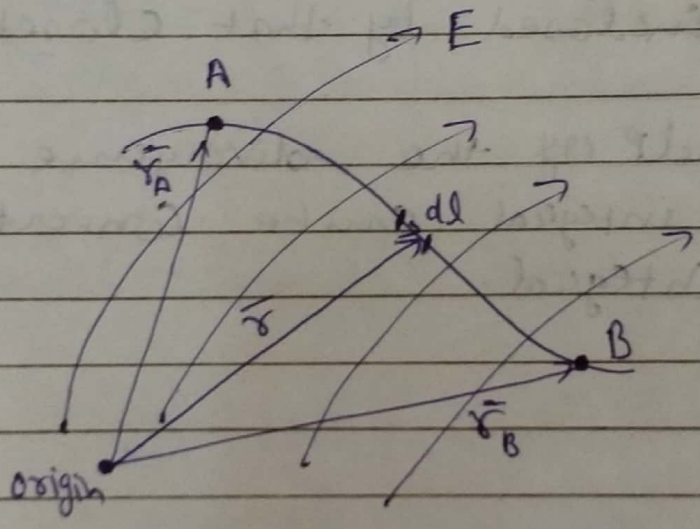 E
A
r̄_A
dl
r̄
B
r̄_B
origin